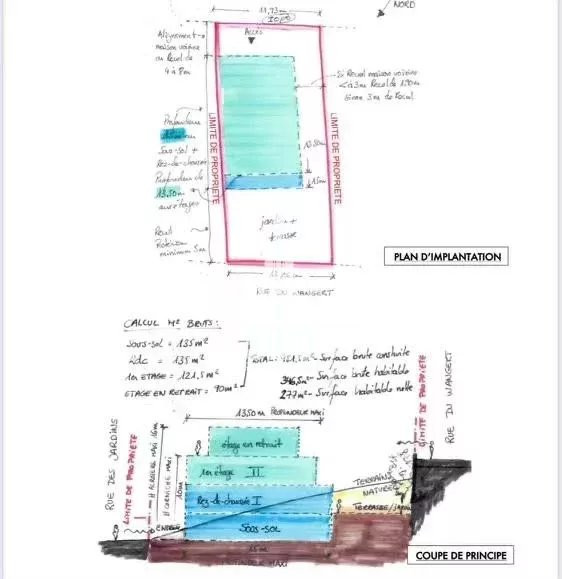 11,73m
NORD
Accès
Alignement
maison voisine
ou Recul de
4 à 8m
Si Recul maison voisine
Profondeur
Sous-sol +
Rez-de-chaussée
Profondeur de
13,50m
aux étages
LIMITE DE PROPRIETE
LIMITE DE PROPRIETE
13,50m
1,5m
jardin +
terrasse
Recul
minimum 5m
RUE DU WANGERT
PLAN D'IMPLANTATION
CALCUL M² BRUTS :
SOUS-SOL = 135 m²
Rdc = 135 m²
1er ETAGE = 121,5 m²
ETAGE EN RETRAIT = 90 m²
TOTAL: Surface brute construite
346,5m² - Surface brute habitable
277m² - Surface habitable nette
13,50m PROFONDEUR MAXI
RUE DES JARDINS
LIMITE DE PROPRIETE
H CORNICHE MAXI
10m
étage en retrait
1er étage II
Rez-de-chaussée I
SOUS-SOL
TERRAIN
NATUREL
LIMITE DE PROPRIETE
RUE DU WANGERT
15m
PROFONDEUR MAXI
COUPE DE PRINCIPE